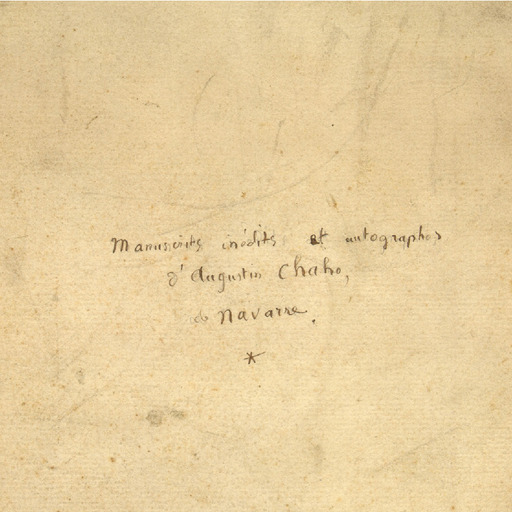 Manuscrits inédits et autographes
d'Augustin Chaho,
de Navarre.
*